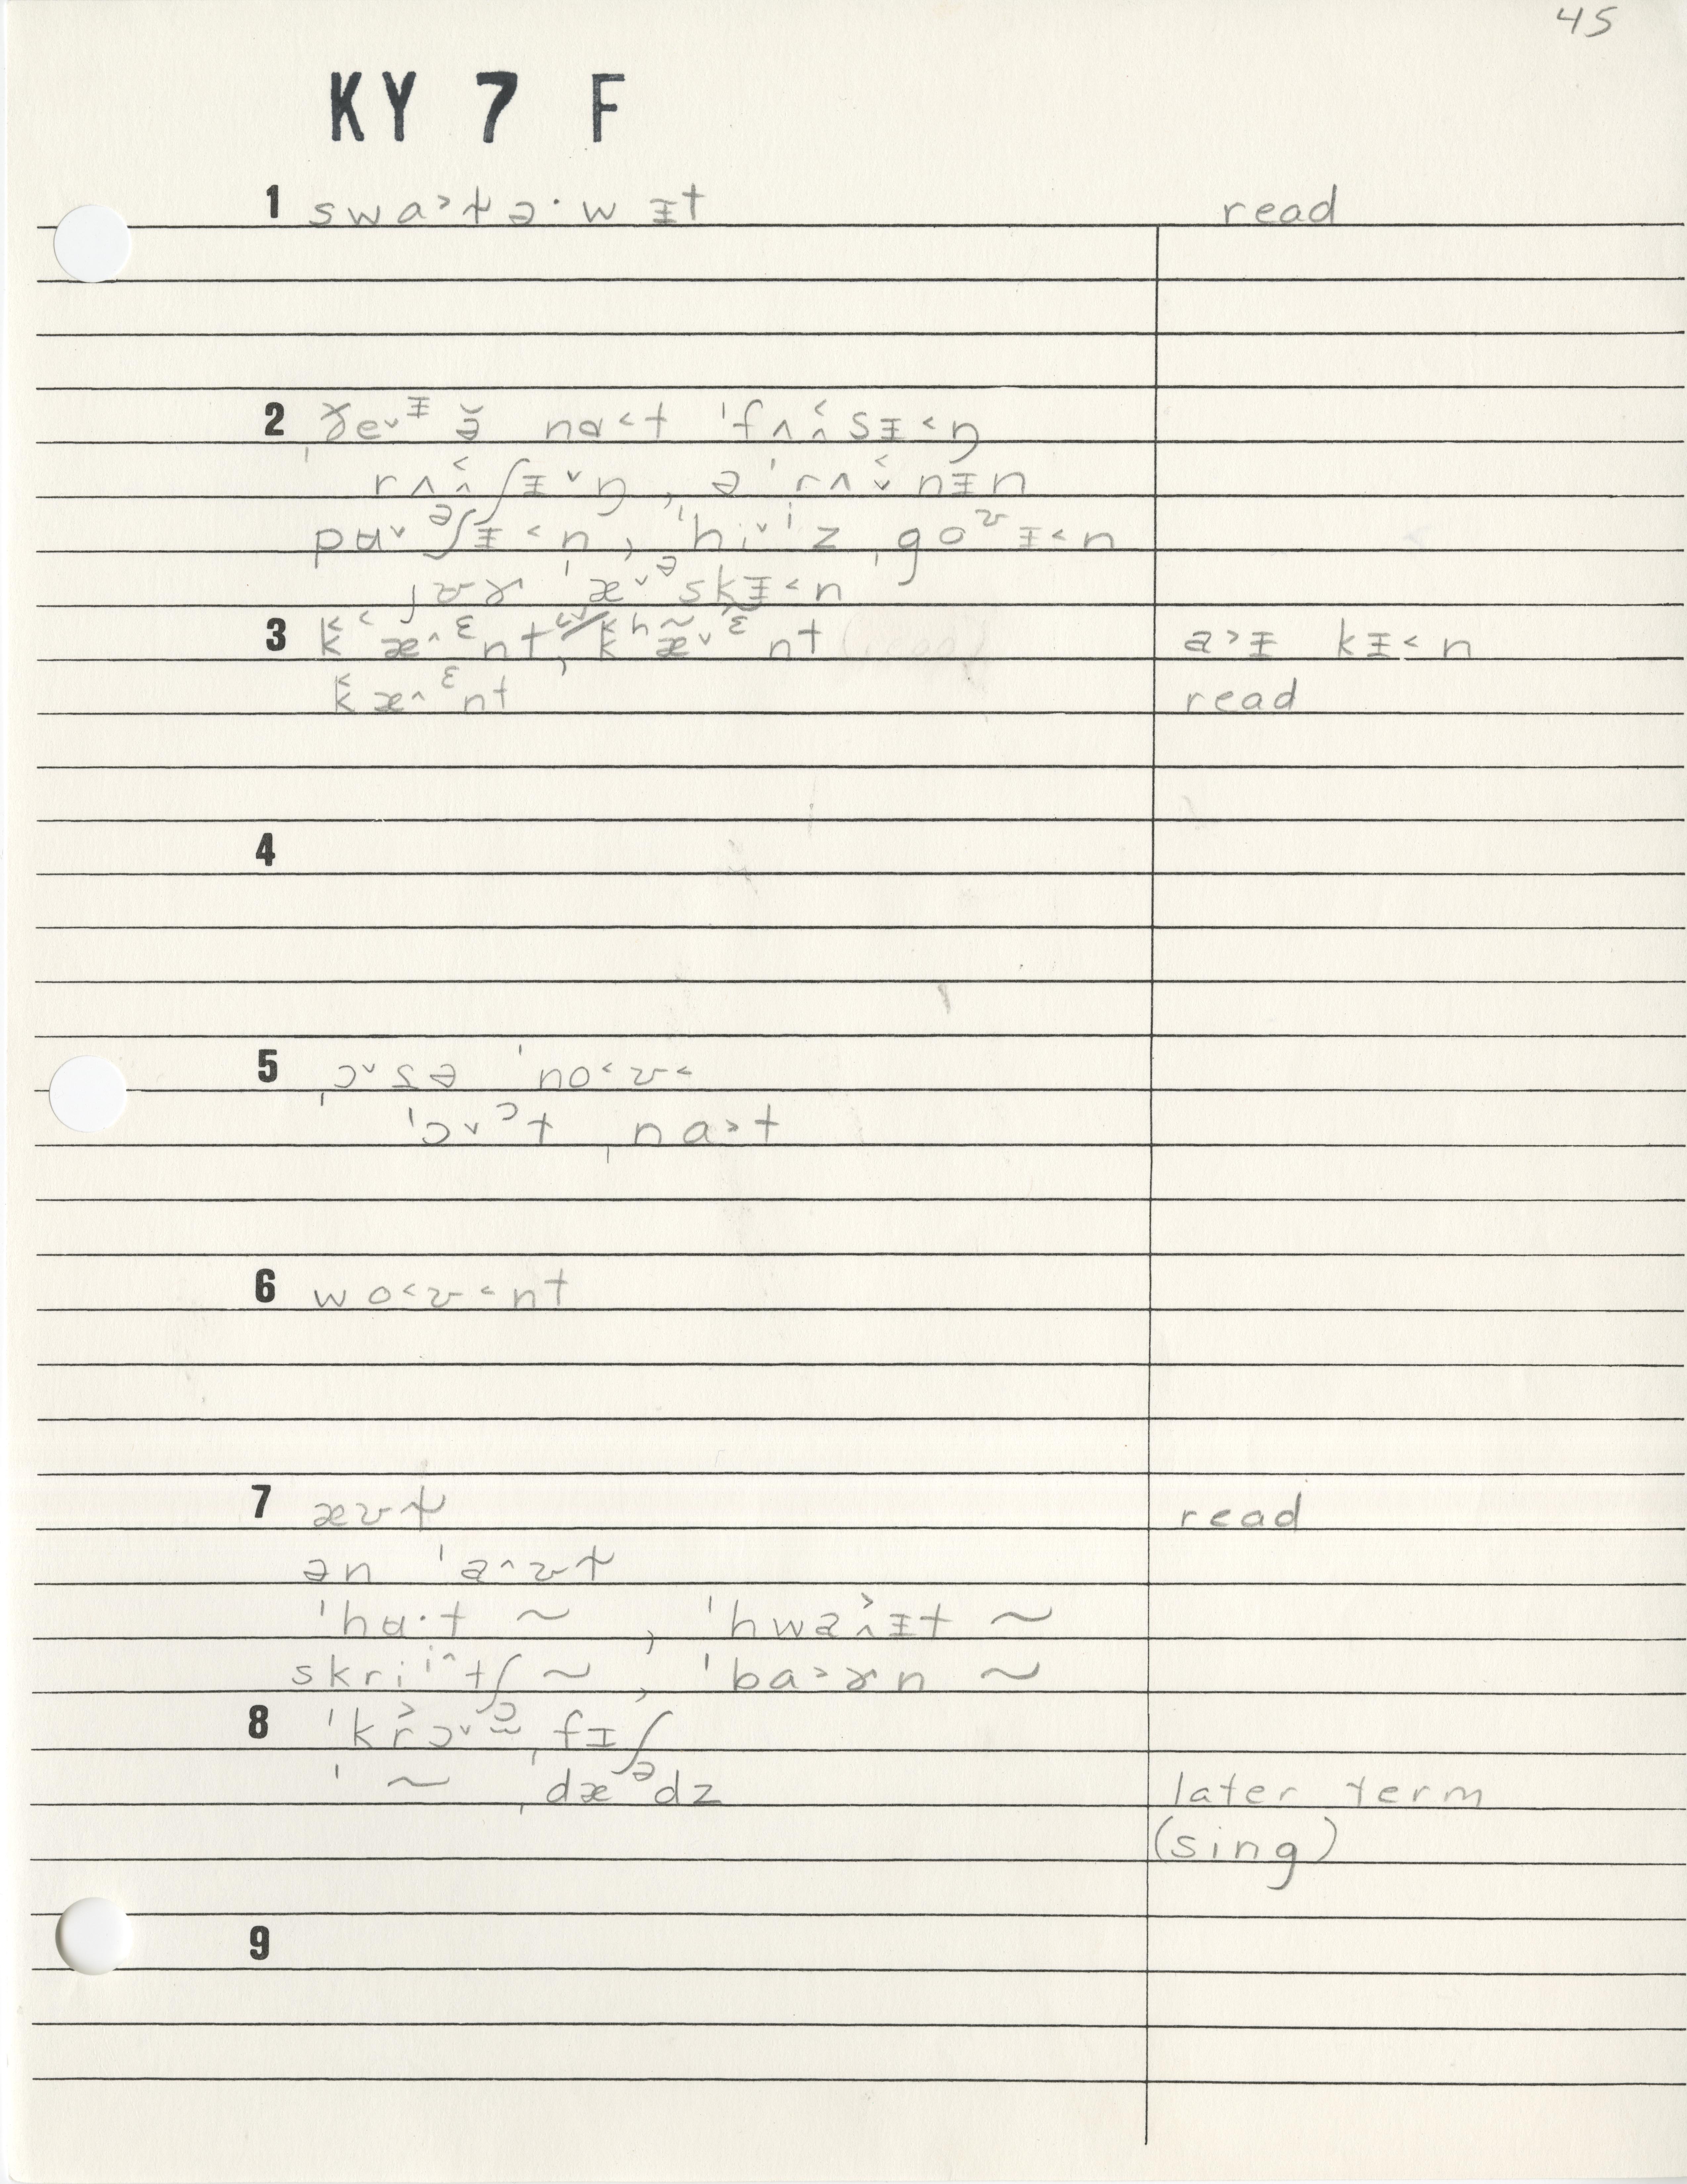 45
KY 7 F
1 swa˃t̴ə·wᵻt read
2 ˌðe˅ᵻ ə̆ nɑ˂t ˈfʌ˂̭sᵻ˂ŋ
rʌ˂̭ʃᵻ˅ŋ, ə ˈrʌ˂̬nᵻn
pɑ˅ᵊʃᵻ˂n, ˈhi˅ⁱz ˌgoᶷᵻ˂n
jʊɚ ˈæ˅ᵊskᵻ˂n
3 k̆˂æ˄ᵋnt, k̆ʰæ̃˅ᵋ̃nt a˃ᵻ kᵻ˂n
k̆æ˄ᵋnt read
4
5 ˌɔ˅sə ˈno˂ʊ˂
ˈɔ˅ᵓt ˌna˃t
6 wo˂ʊ˂nt
7 æʊt̴ read
ən ˈa˄ʊt̴
ˈhɑ·t ~, ˈhwa˃̭ᵻt ~
skriⁱ˄tʃ ~, ˈba˃ɚn ~
8 ˈkr̆ɔ˅ᵓ̃ˌfɪʃ
ˈ~ ˌdæᵊdz later term
(sing)
9